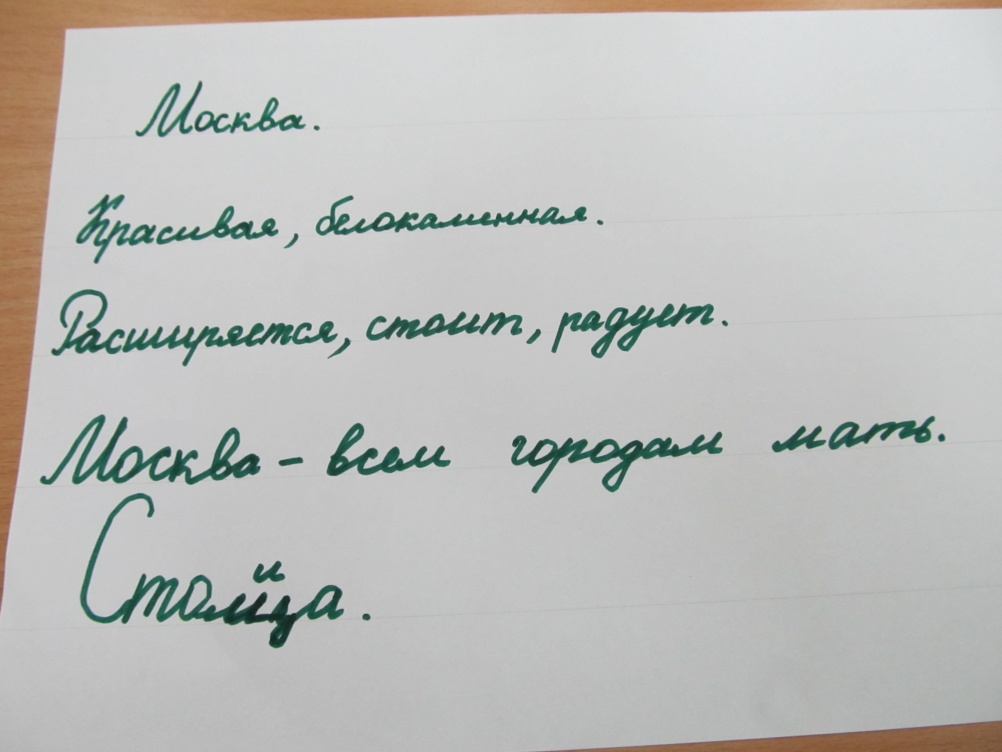 Москва.
Красивая, белокаменная.
Расширяется, стоит, радует.
Москва - всем городам мать.
Столица.